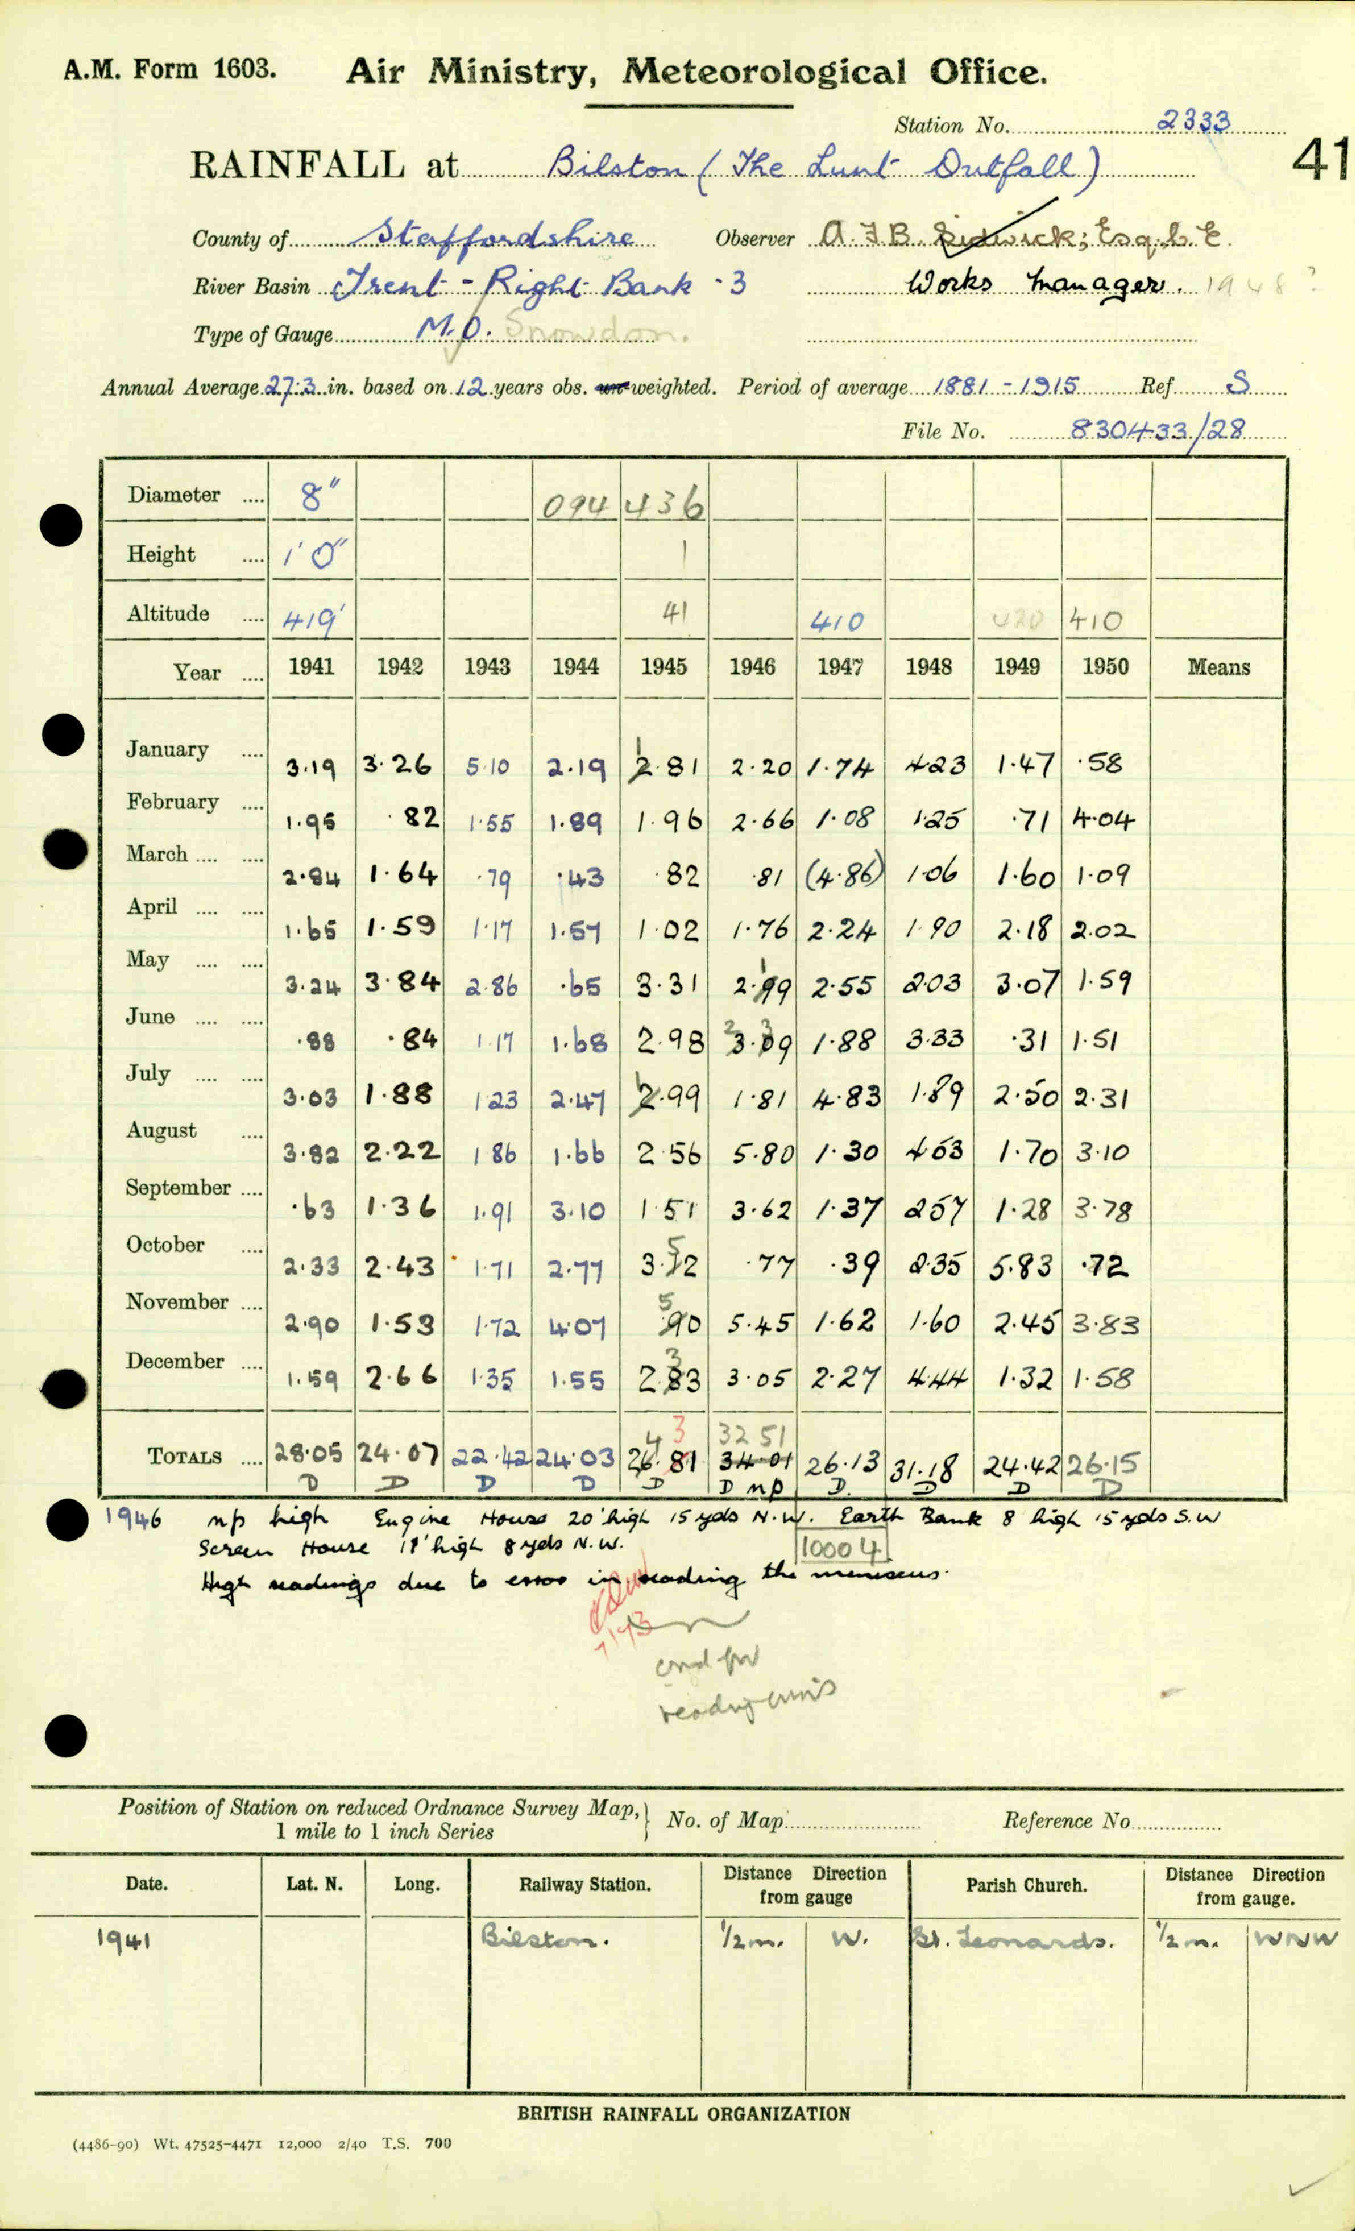 A.M. Form 1603. Air Ministry, Meteorological Office.
Station No. 2333
41
RAINFALL at Bilston (The Lunt Outfall)
County of Staffordshire Observer A.F.B. Sidwick, Esq. C.E.
River Basin Trent - Right Bank - 3 Works Manager. 1948?
Type of Gauge M.O. Snowdon.
Annual Average 27.3 in. based on 12 years obs. un-weighted. Period of average 1881 - 1915 Ref. S
File No. 830433/28
Diameter .... 8" 094 436
Height .... 1' 0" 1
Altitude .... 419' 41 410 420 410
Year .... 1941 1942 1943 1944 1945 1946 1947 1948 1949 1950 Means
January .... 3.19 3.26 5.10 2.19 1 2.81 2.20 1.74 4.23 1.47 .58
February .... 1.95 .82 1.55 1.89 1.96 2.66 1.08 1.25 .71 4.04
March .... .... 2.84 1.64 .79 .43 .82 .81 (4.86) 1.06 1.60 1.09
April .... .... 1.65 1.59 1.17 1.57 1.02 1.76 2.24 1.90 2.18 2.02
May .... .... 3.24 3.84 2.86 .65 3.31 2.99 1 2.55 2.03 3.07 1.59
June .... .... .88 .84 1.17 1.68 2.98 2 3 3.09 1.88 3.33 .31 1.51
July .... .... 3.03 1.88 1.23 2.47 1 2.99 1.81 4.83 1.89 2.50 2.31
August .... 3.82 2.22 1.86 1.66 2.56 5.80 1.30 4.53 1.70 3.10
September .... .63 1.36 1.91 3.10 1.51 3.62 1.37 2.57 1.28 3.78
October .... 2.33 2.43 1.71 2.77 5 3.12 .77 .39 2.35 5.83 .72
November .... 2.90 1.53 1.72 4.07 5 .90 5.45 1.62 1.60 2.45 3.83
December .... 1.59 2.66 1.35 1.55 3 2.83 3.05 2.27 4.44 1.32 1.58
4 3 32 51
TOTALS .... 28.05 24.07 22.42 24.03 26.81 34.01 26.13 31.18 24.42 26.15
D D D D D D np D. D D D
1946 np high Engine House 20' high 15 yds N.W. Earth Bank 8' high 15 yds S.W
Screen House 11' high 8 yds N.W. 10004
High readings due to error in reading the meniscus.
Position of Station on reduced Ordnance Survey Map, } No. of Map Reference No.
1 mile to 1 inch Series
Date. Lat. N. Long. Railway Station. Distance Direction from gauge Parish Church. Distance Direction from gauge.
1941 Bilston. 1/2 m. W. St. Leonards. 1/2 m. WNW
BRITISH RAINFALL ORGANIZATION
(4486-90) Wt. 47525-4471 12,000 2/40 T.S. 700